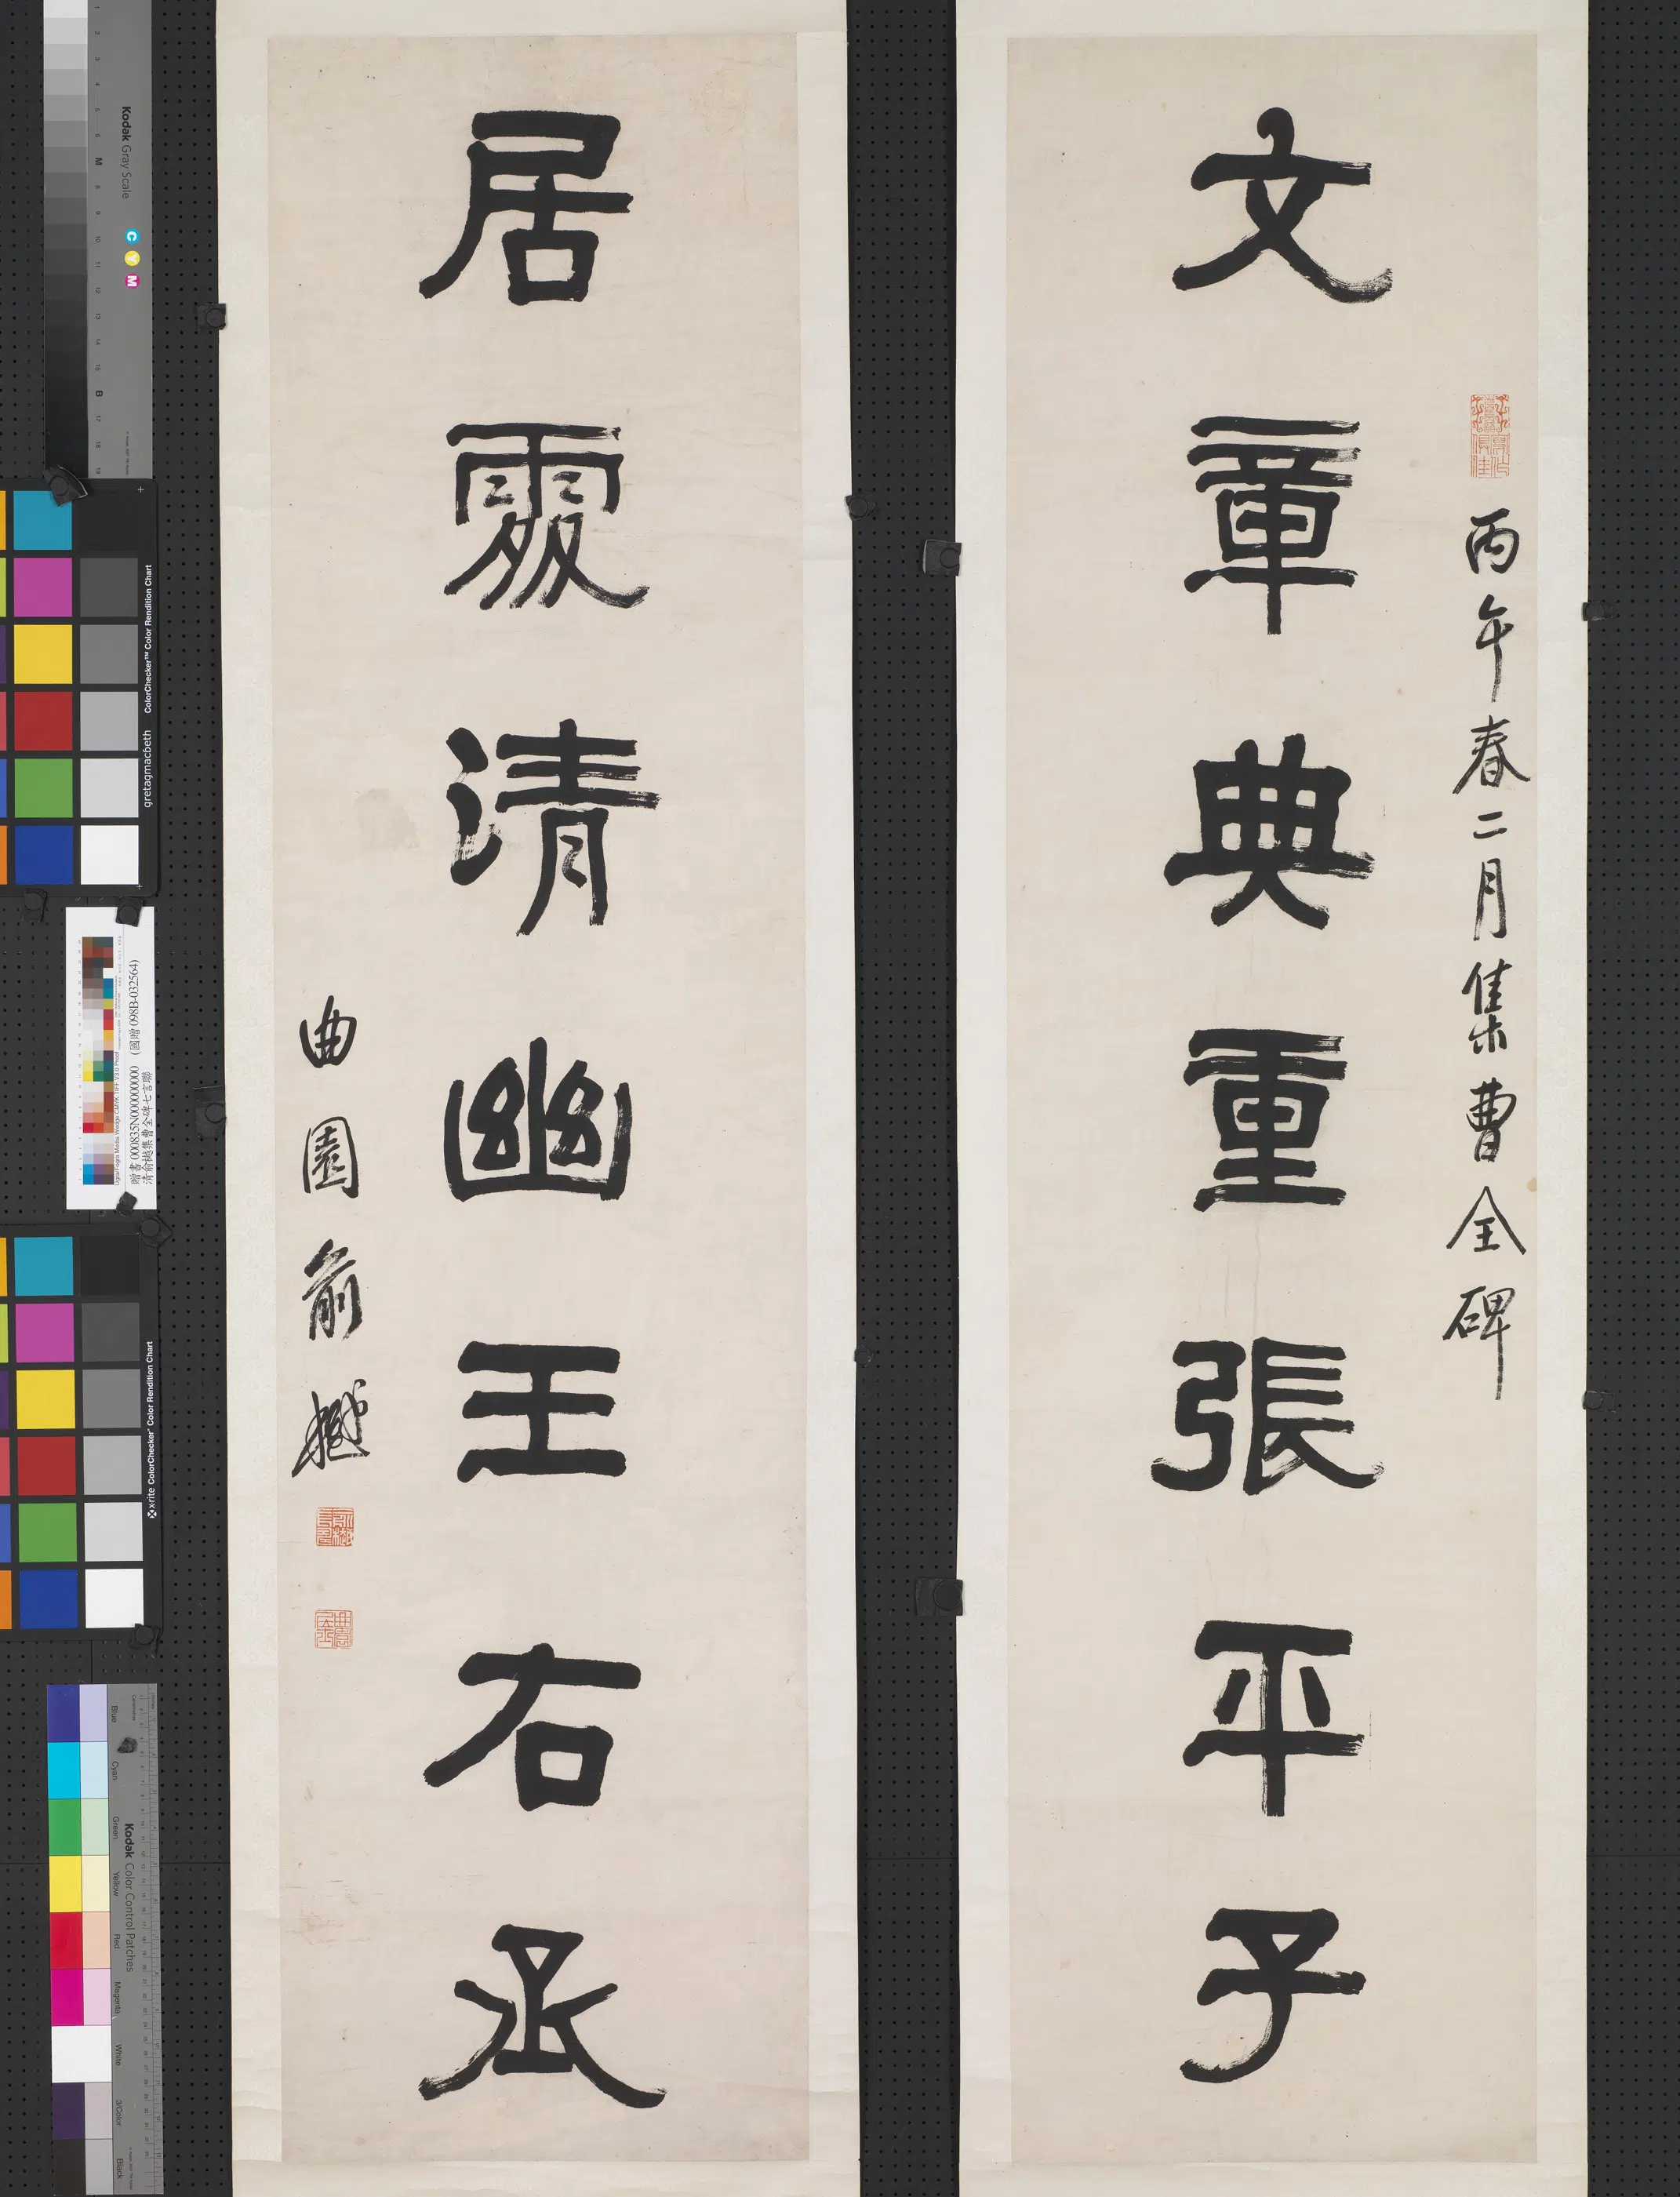 文章典重張平子
丙午春二月集曹全碑
居處清幽王右丞
曲園俞樾
Kodak Gray Scale
C Y M
gretagmacbeth ColorChecker™ Color Rendition Chart
贈書 000835N000000000 (國贈 098B-032564)
清俞樾集曹全碑七言聯
x-rite ColorChecker Color Rendition Chart
Kodak Color Control Patches
Blue
Cyan
Green
Yellow
Red
Magenta
White
3/Color
Black